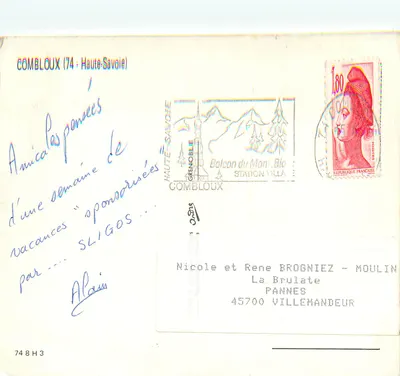 COMBLOUX (74 - Haute-Savoie)
Amicales pensées
d'une semaine de
vacances "sponsorisées"
par .... SLIGOS ...
Alain
74 8 H 3
HAUTE-SAVOIE
GRENOBLE
Balcon du Mont Bl
STATION VILLA
COMBLOUX
1,80
REPUBLIQUE FRANÇAISE
Nicole et Rene BROGNIEZ - MOULIN
La Brulate
PANNES
45700 VILLEMANDEUR